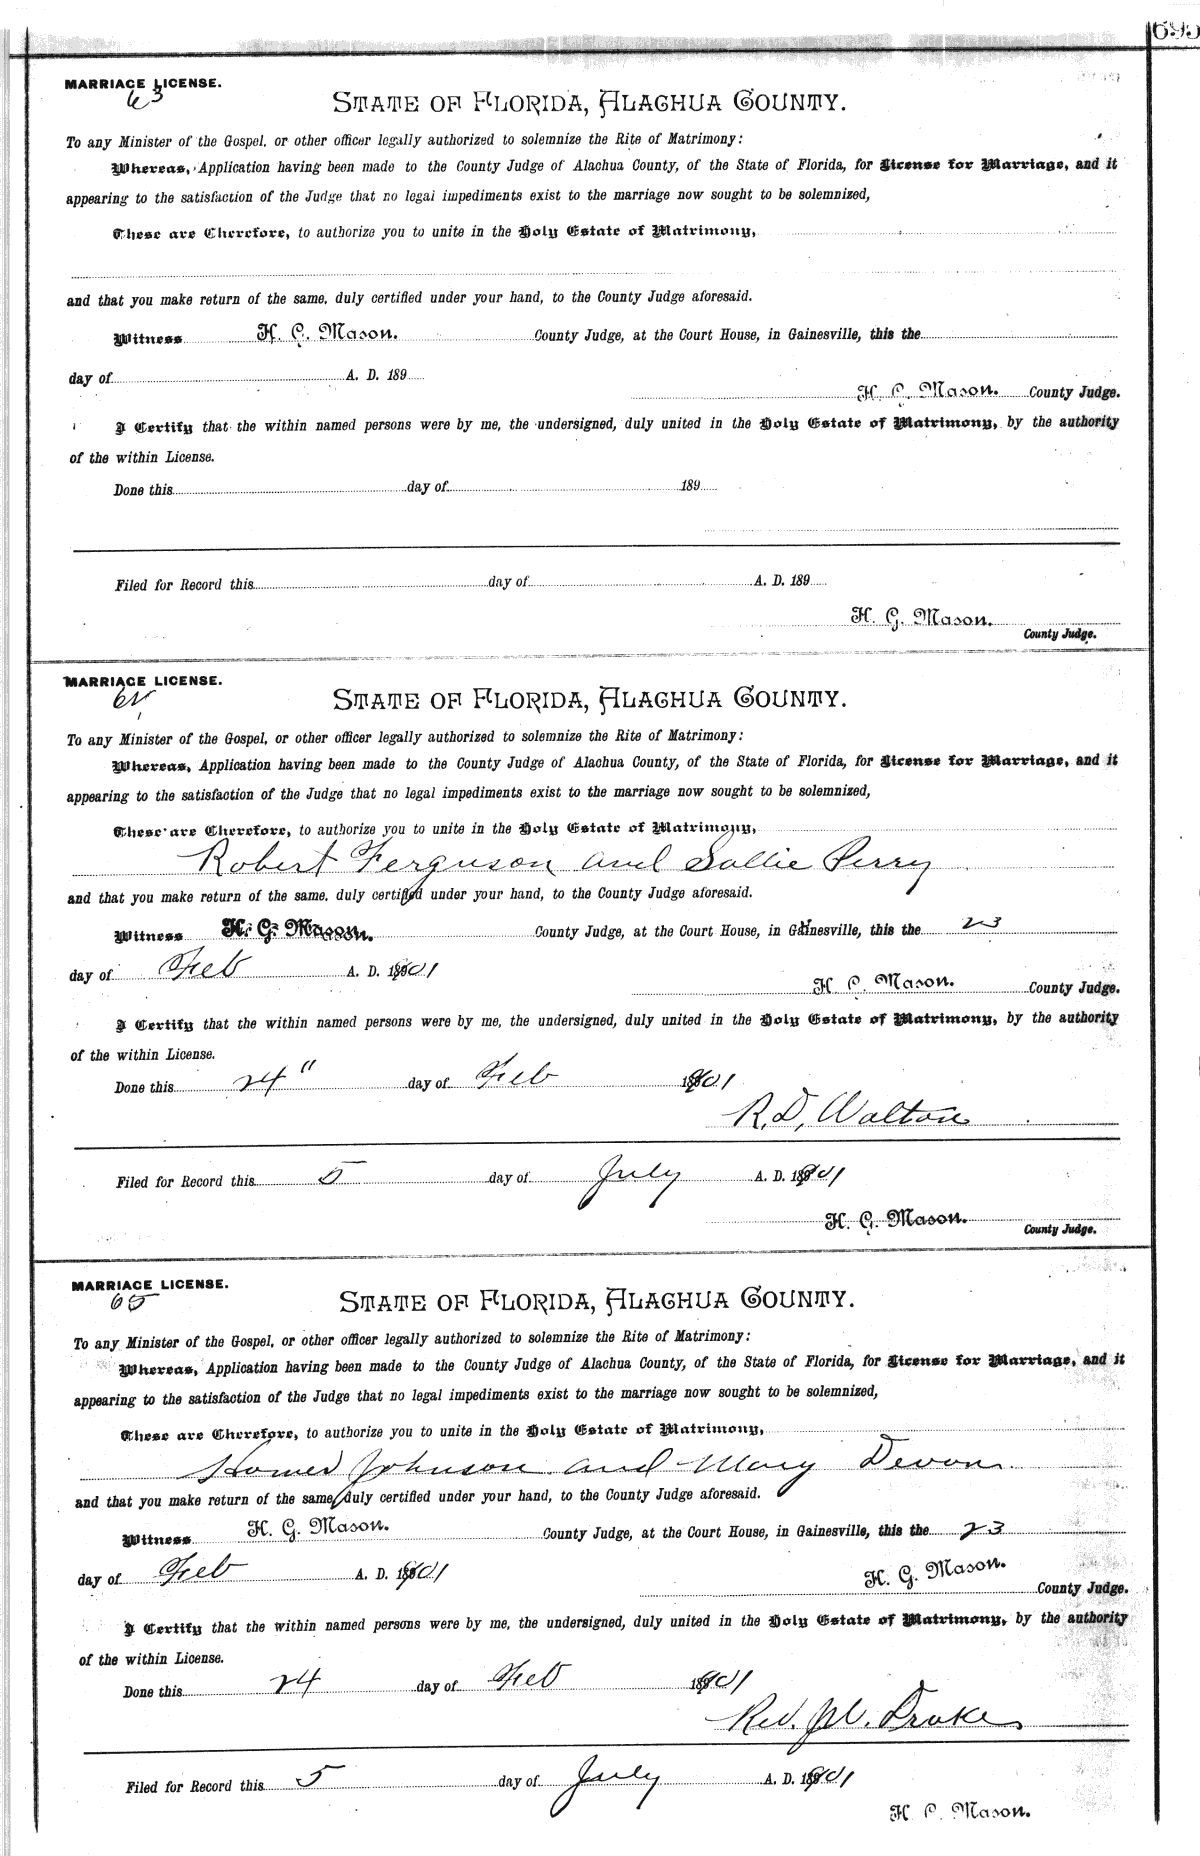 695
MARRIAGE LICENSE.
63
STATE OF FLORIDA, ALACHUA COUNTY.
To any Minister of the Gospel, or other officer legally authorized to solemnize the Rite of Matrimony:
Whereas, Application having been made to the County Judge of Alachua County, of the State of Florida, for License for Marriage, and it
appearing to the satisfaction of the Judge that no legal impediments exist to the marriage now sought to be solemnized,
These are Therefore, to authorize you to unite in the Holy Estate of Matrimony,
and that you make return of the same, duly certified under your hand, to the County Judge aforesaid.
Witness H. G. Mason. County Judge, at the Court House, in Gainesville, this the
day of A. D. 189
H. G. Mason. County Judge.
I Certify that the within named persons were by me, the undersigned, duly united in the Holy Estate of Matrimony, by the authority
of the within License.
Done this day of 189
Filed for Record this day of A. D. 189
H. G. Mason.
County Judge.
MARRIAGE LICENSE.
64
STATE OF FLORIDA, ALACHUA COUNTY.
To any Minister of the Gospel, or other officer legally authorized to solemnize the Rite of Matrimony:
Whereas, Application having been made to the County Judge of Alachua County, of the State of Florida, for License for Marriage, and it
appearing to the satisfaction of the Judge that no legal impediments exist to the marriage now sought to be solemnized,
These are Therefore, to authorize you to unite in the Holy Estate of Matrimony,
Robert Ferguson and Sallie Perry
and that you make return of the same, duly certified under your hand, to the County Judge aforesaid.
Witness H. G. Mason. County Judge, at the Court House, in Gainesville, this the 23
day of Feb A. D. 1901
H. G. Mason. County Judge.
I Certify that the within named persons were by me, the undersigned, duly united in the Holy Estate of Matrimony, by the authority
of the within License.
Done this 24" day of Feb 1901
R. D. Walton
Filed for Record this 5 day of July A. D. 1901
H. G. Mason.
County Judge.
MARRIAGE LICENSE.
65
STATE OF FLORIDA, ALACHUA COUNTY.
To any Minister of the Gospel, or other officer legally authorized to solemnize the Rite of Matrimony:
Whereas, Application having been made to the County Judge of Alachua County, of the State of Florida, for License for Marriage, and it
appearing to the satisfaction of the Judge that no legal impediments exist to the marriage now sought to be solemnized,
These are Therefore, to authorize you to unite in the Holy Estate of Matrimony,
Homer Johnson and Mary Devon
and that you make return of the same, duly certified under your hand, to the County Judge aforesaid.
Witness H. G. Mason. County Judge, at the Court House, in Gainesville, this the 23
day of Feb A. D. 1901
H. G. Mason.
County Judge.
I Certify that the within named persons were by me, the undersigned, duly united in the Holy Estate of Matrimony, by the authority
of the within License.
Done this 24 day of Feb 1901
Rev. Drake
Filed for Record this 5 day of July A. D. 1901
H. G. Mason.